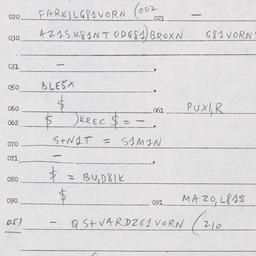 020 FAREJLG81VORN (002 021 —
030 AZ1SK81NTODG81)BROXN G81VORN
031 — .
050 BLE5X .
060 $ 061 PUX1,R
062 $ )KREC $ = — .
070 S+N1T = S1M1N
071 — .
080 $ = BU,D81K
090 $ 091 MAZO,L81S
051 — QS+VARDZG1VORN (210